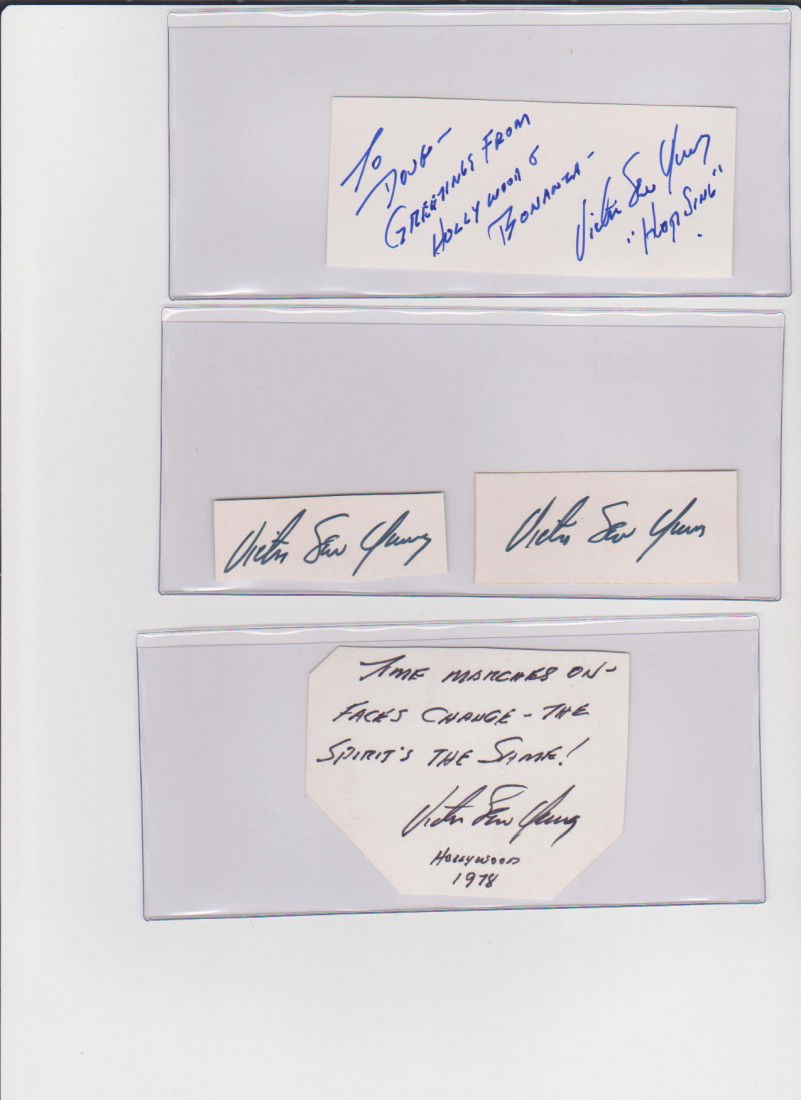 To
Doug-
Greetings from
Hollywood &
Bonanza-
Victor Sen Yung
"Hop Sing"
Victor Sen Yung
Victor Sen Yung
Time marches on-
Faces change - the
Spirit's the same!
Victor Sen Yung
Hollywood
1978